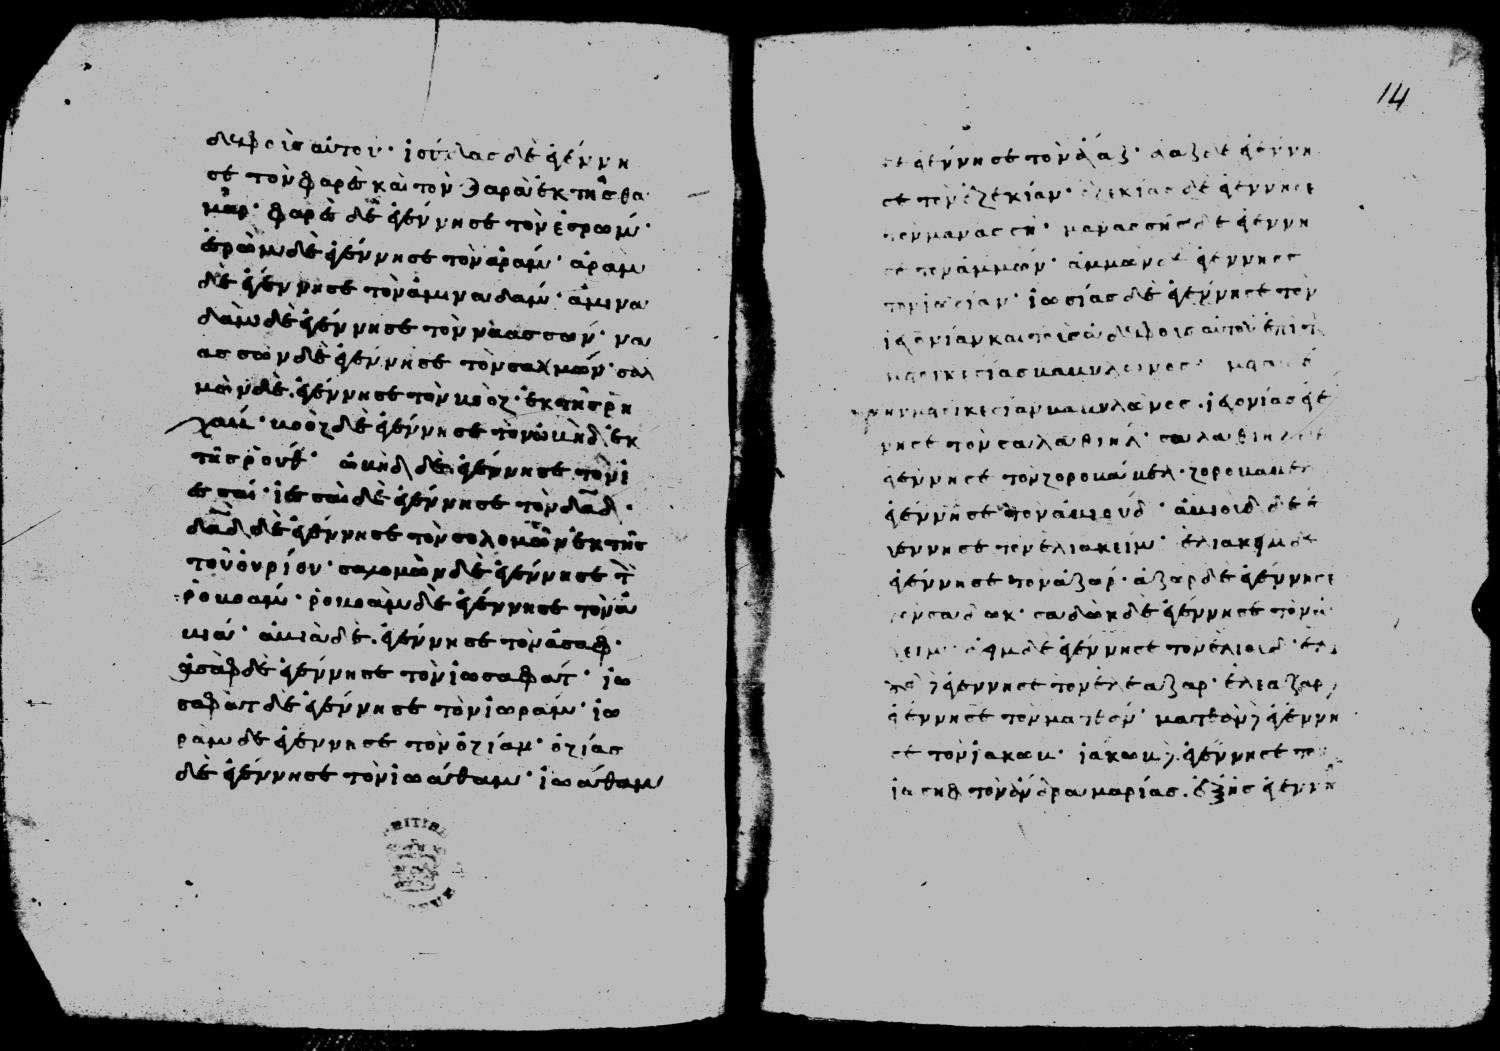 δελφοὺς αὐτοῦ· ἰούδας δὲ ἐγέννη
σε τὸν φαρὲς καὶ τὸν ζαρὰ ἐκ τῆς θα
μαρ· φαρὲς δὲ ἐγέννησε τὸν ἐσρώμ·
ἐσρὼμ δὲ ἐγέννησε τὸν ἀράμ· ἀρὰμ
δὲ ἐγέννησε τὸν ἀμιναδάμ· ἀμινα
δὰμ δὲ ἐγέννησε τὸν ναασσών· να
ασσὼν δὲ ἐγέννησε τὸν σαλμών· σαλ
μὼν δὲ ἐγέννησε τὸν βοὸζ ἐκ τῆς ρὴ
χάβ· βοὸζ δὲ ἐγέννησε τὸν ὠβὴδ ἐκ
τῆς ροὺθ· ὠβὴδ δὲ ἐγέννησε τὸν ἰ
εσσαί· ἰεσσαὶ δὲ ἐγέννησε τὸν δαδ·
δαδ δὲ ἐγέννησε τὸν σολομῶν ἐκ τῆς
τοῦ οὐρίου· σαλομὼν δὲ ἐγέννησε τ
ροβοάμ· ῥοβοὰμ δὲ ἐγέννησε τὸν ἀ
βιά· ἀβιὰ δὲ ἐγέννησε τὸν ἀσάφ·
ἀσὰφ δὲ ἐγέννησε τὸν ἰωσαφάτ· ἰω
σαφὰτ δὲ ἐγέννησε τὸν ἰωράμ· ἰω
ρὰμ δὲ ἐγέννησε τὸν ὀζίαν· ὀζίας
δὲ ἐγέννησε τὸν ἰωάθαμ· ἰωάθαμ
14
δὲ ἐγέννησε τὸν ἄαξ· ἄαξ δὲ ἐγέννη
σε τὸν ἐζεκίαν· ἐζεκίας δὲ ἐγέννησε
τὸν μανασσῆ· μανασσῆς δὲ ἐγέννη
σε τὸν ἀμμών· ἀμμὼν δὲ ἐγέννησε
τὸν ἰωσίαν· ἰωσίας δὲ ἐγέννησε τὸν
ἰεχονίαν καὶ τοὺς ἀδελφοὺς αὐτοῦ ἐπὶ τ
μετοικεσίας βαβυλῶνος· μετὰ δὲ
τὴν μετοικεσίαν βαβυλῶνος· ἰεχονίας ἐγέ
νησε τὸν σαλαθιήλ· σαλαθιὴλ δὲ
ἐγέννησε τὸν ζοροβάβελ· ζοροβάβελ
ἐγέννησε τὸν ἀβιούδ· ἀβιοὺδ δὲ ἐ
γέννησε τὸν ἐλιακείμ· ἐλιακημ δὲ
ἐγέννησε τὸν ἀζάρ· ἀζὰρ δὲ ἐγέννησε
τὸν σαδώκ· σαδὼκ δὲ ἐγέννησε τὸν ἀ
χείμ· ἀχημ δὲ ἐγέννησε τὸν ἐλιούδ· ἐλι
ἐγέννησε τὸν ἐλεάζαρ· ἐλεάζαρ
ἐγέννησε τὸν ματθάν· ματθὰν ἐγέννη
σε τὸν ἰακώβ· ἰακὼβ ἐγέννησε τὸν
ἰωσὴφ τὸν ἄνδρα μαρίας· ἐξ ἧς ἐγενν